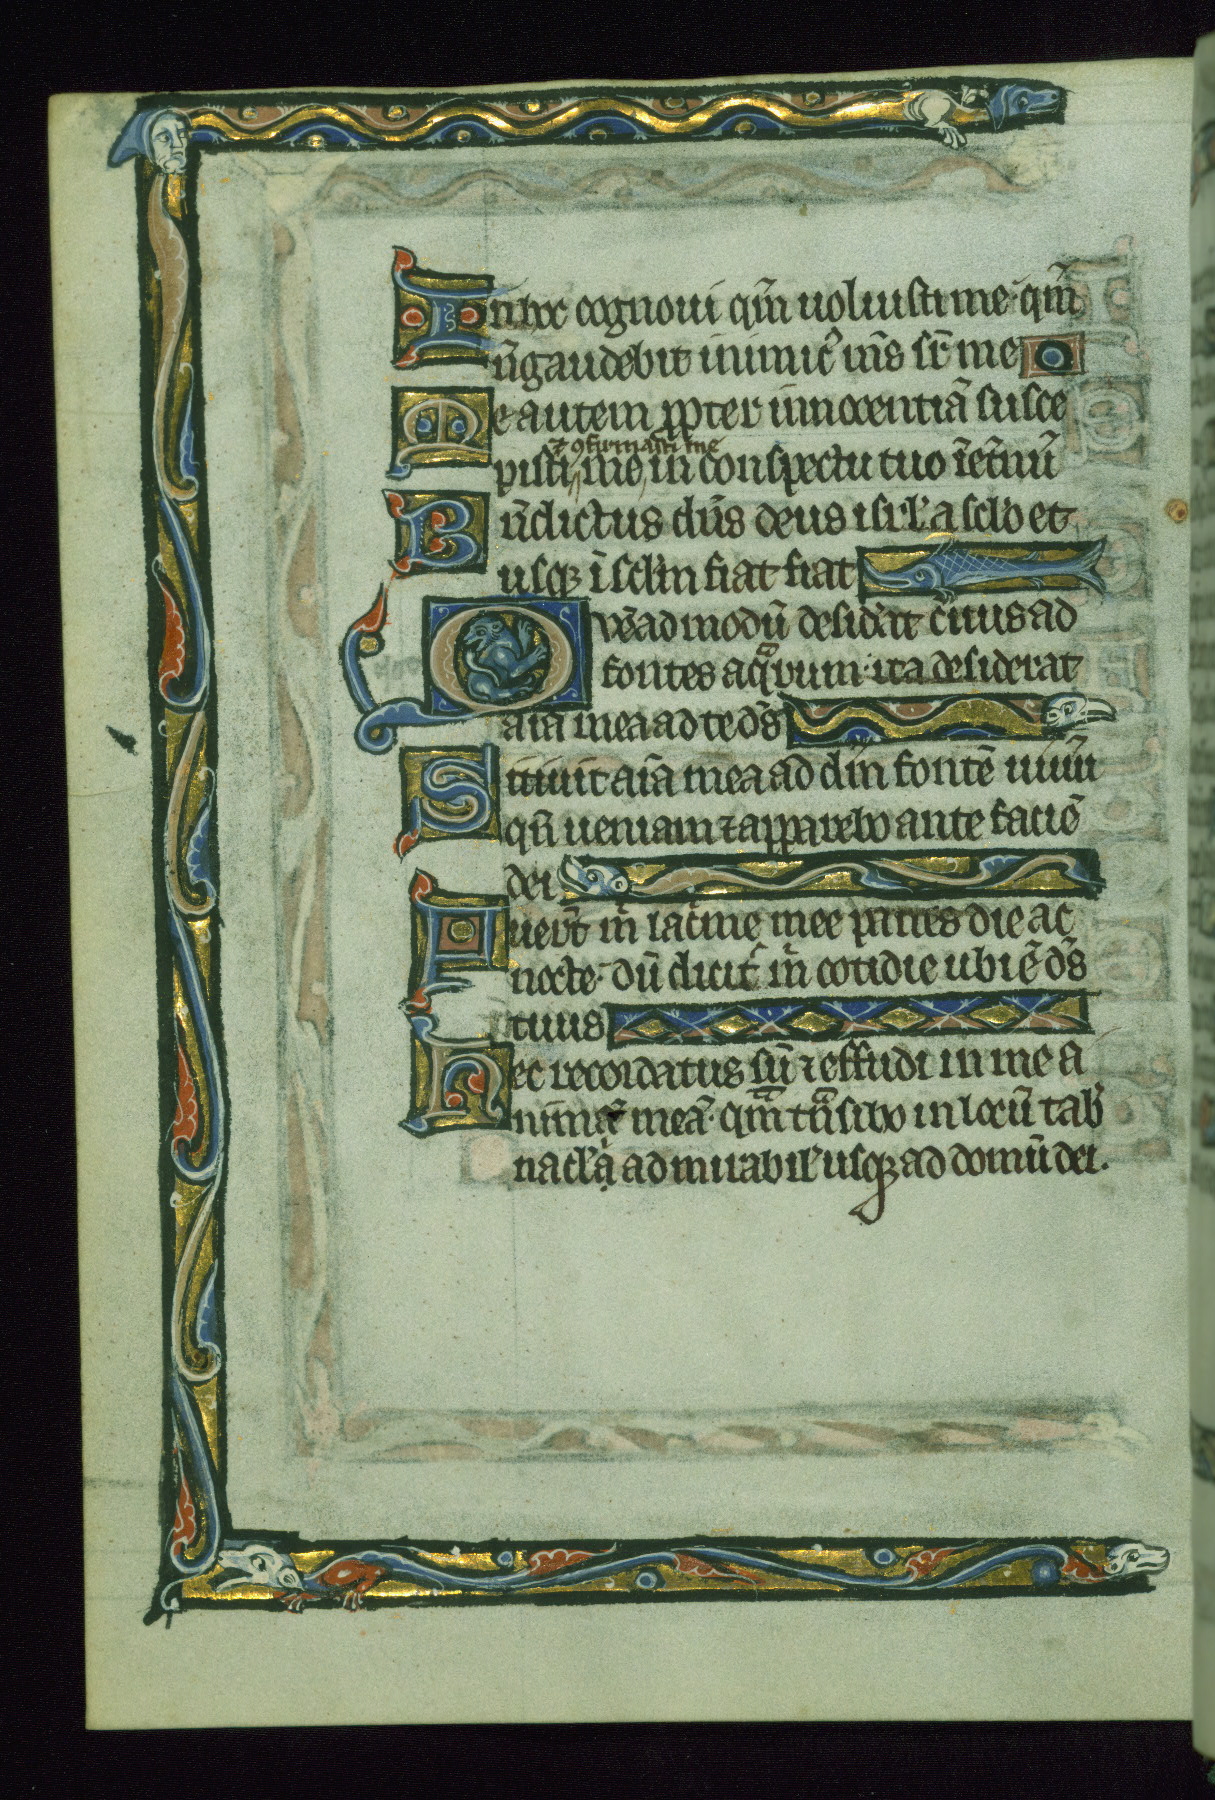 In hoc cognoui qm̄ uoluisti me· qm̄
ñ gaudebit inimic᷒ m̄s sr̄ me
Me autem ꝓpter innocentiā susce
⁊ ꝯfirmasti me
pisti me in conspectu tuo ī et̄nū
Bn̄dictus dn̄s deus isrl̓ a sclo et
usqꝫ ī sclm̄ fiat fiat
Quēadmodū desid̓at c̓uus ad
fontes aqͣrum· ita desiderat
aīa mea ad te ds̄
Sitiuit aīa mea ad dm̄ fontē uiuū
qn̄ ueniam ⁊ apparebo ante faciē
dei
Fuer̄t m̄ lac̓me mee panes die ac
nocte· dū dicit᷑ m̄ cotidie ubi ē ds̄
tuus
Hec recordatus sū ⁊ effudi in me a
nimā meā· qm̄ tͣnsibo in locū tab̓
nacl̓i admirabil̓ usqꝫ ad domū dei.